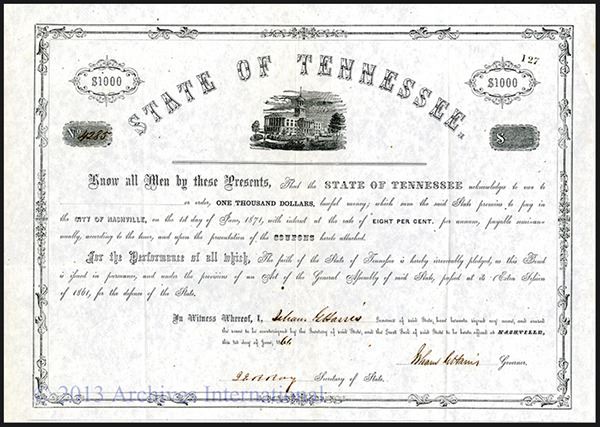 127
$1000
$1000
STATE OF TENNESSEE.
No. 4285
$
Know all Men by these Presents, That the STATE OF TENNESSEE acknowledges to owe to
or order, ONE THOUSAND DOLLARS, lawful money; which sum the said State promises to pay in
the CITY OF NASHVILLE, on the 1st day of June, 1871, with interest at the rate of EIGHT PER CENT. per annum, payable semi-an-
nually, according to the tenor, and upon the presentation of the COUPONS hereto attached.
For the Performance of all which, The faith of the State of Tennessee is hereby irrevocably pledged, as this Bond
is issued in pursuance, and under the provisions of an Act of the General Assembly of said State, passed at its Extra Session
of 1861, for the defence of the State.
In Witness Whereof, I, Isham G Harris Governor of said State, have hereunto signed my name, and caused
the same to be countersigned by the Secretary of said State, and the Great Seal of said State to be hereto affixed at NASHVILLE,
this 1st day of June, 1861
Isham G Harris Governor.
J. E. R. Ray Secretary of State.
© 2013 Archives International